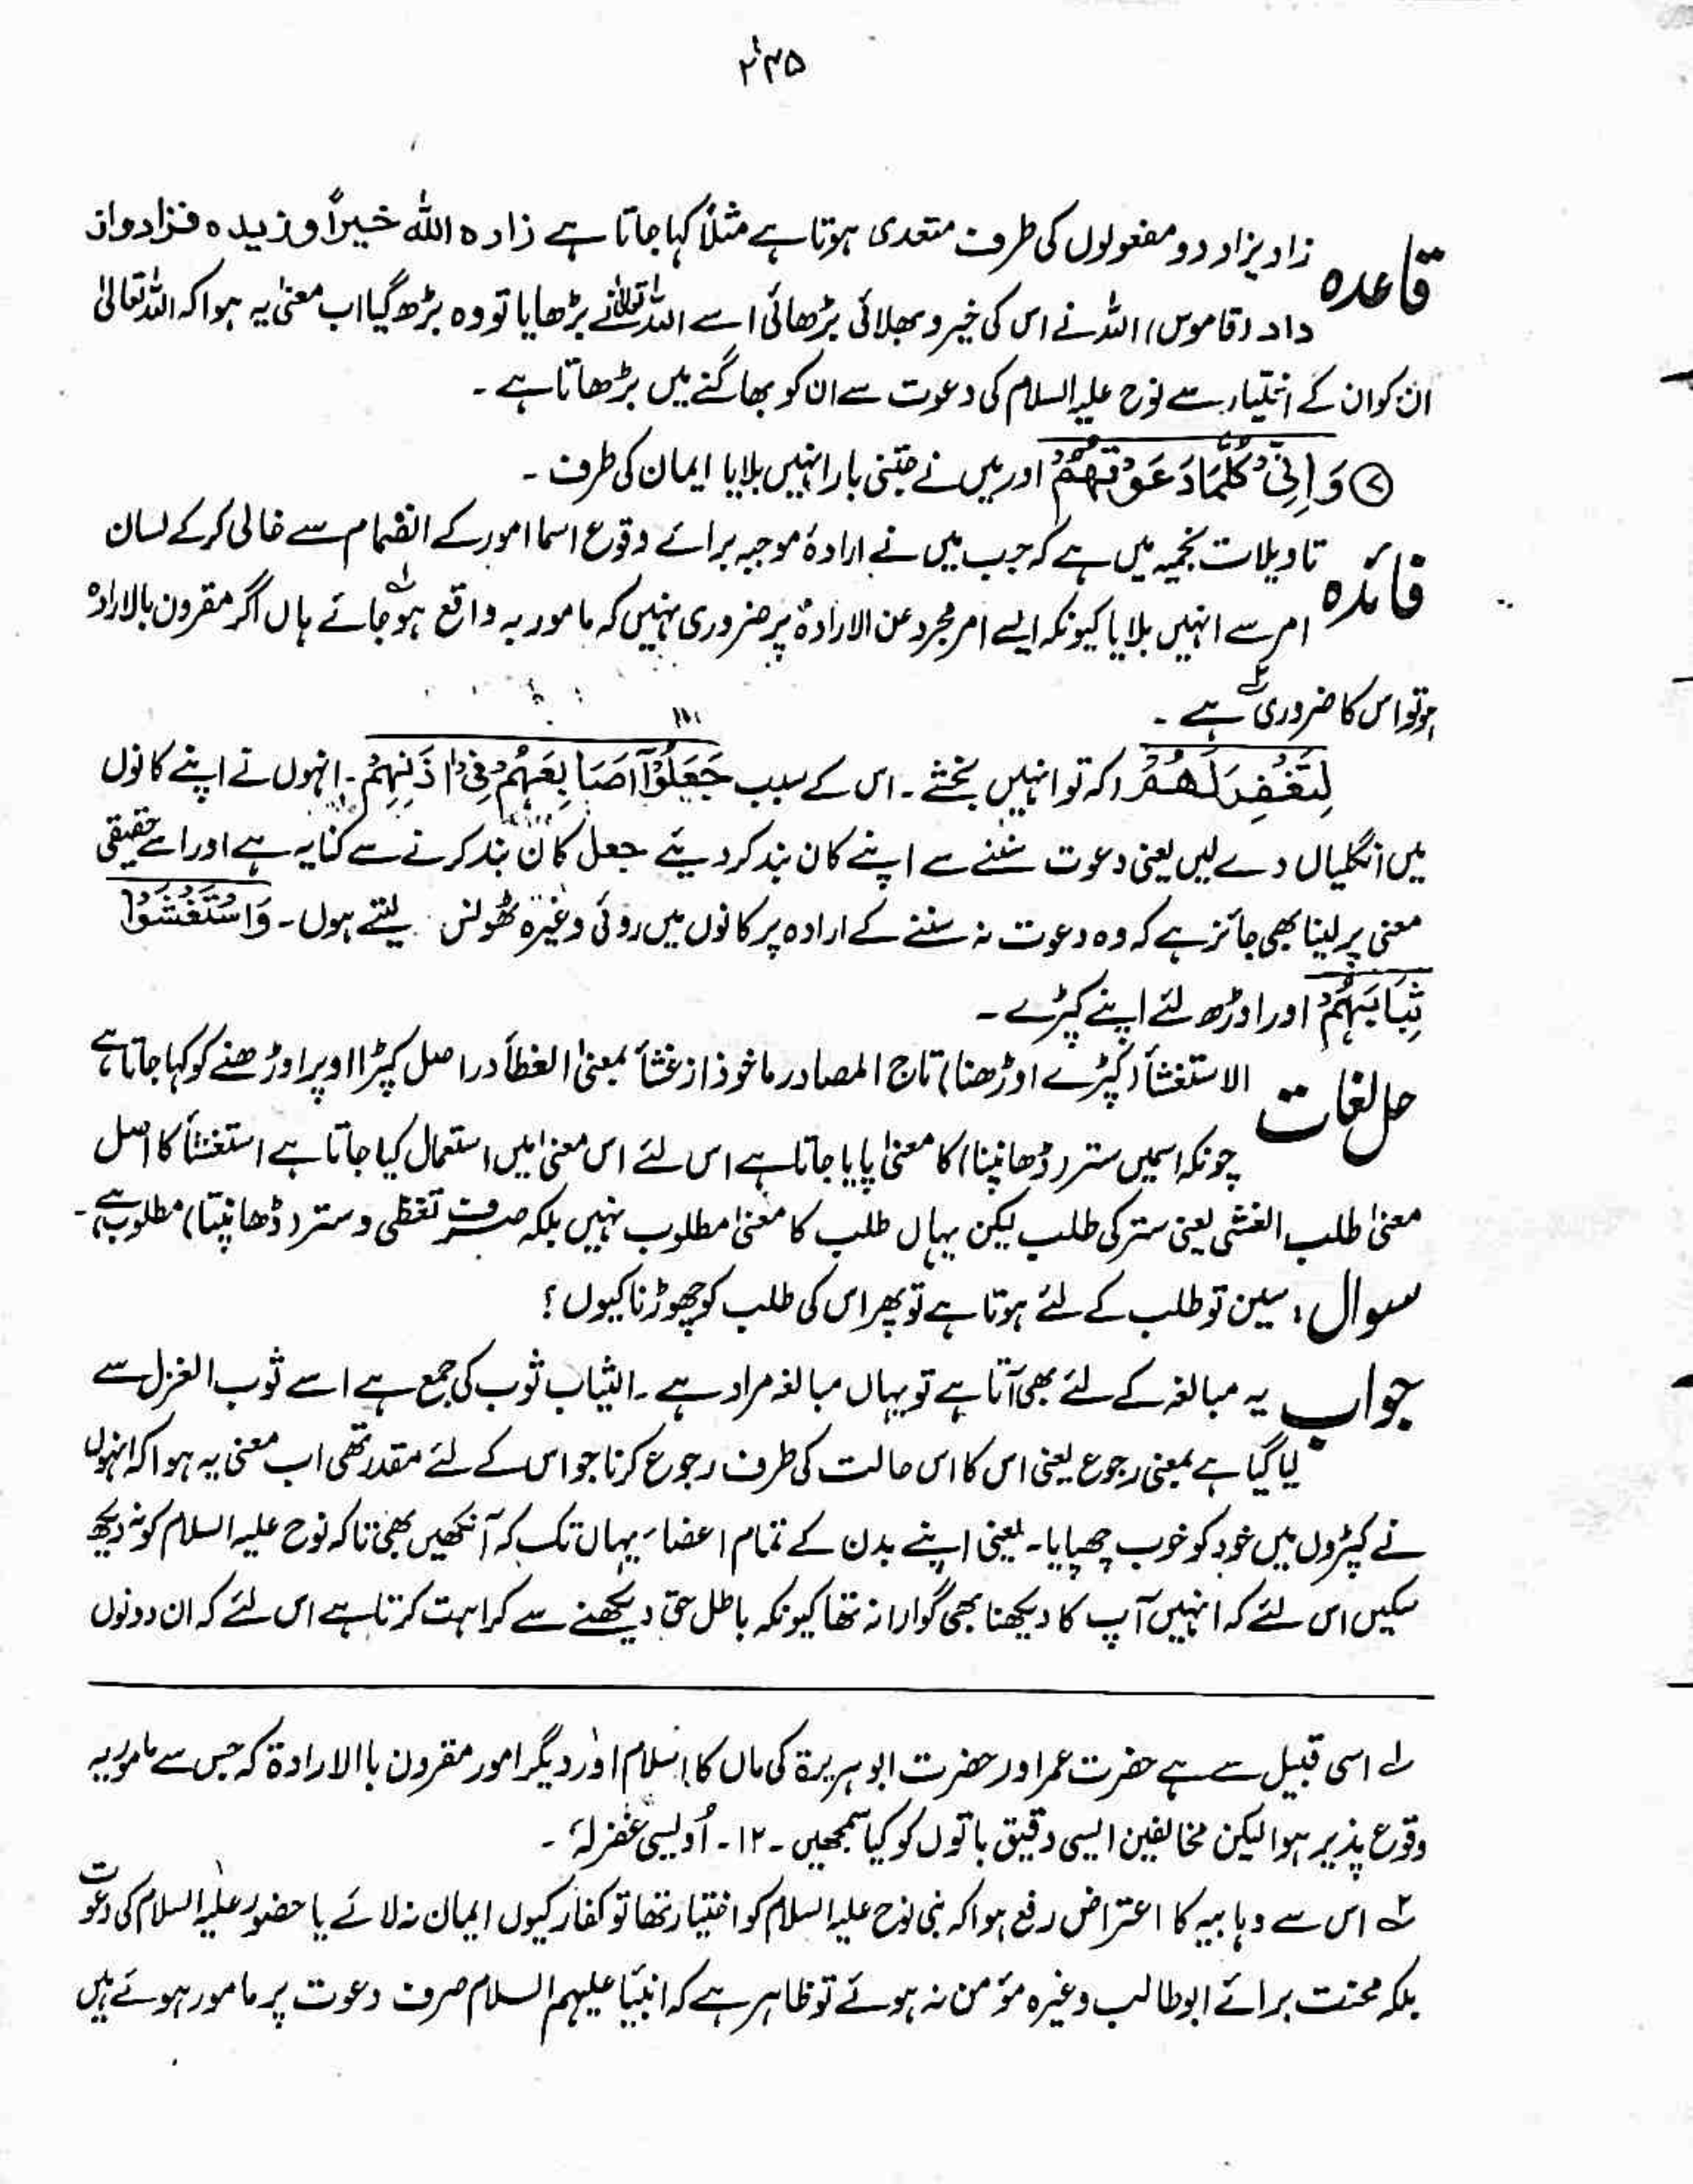 ۲۳۵
قاعدہ زاد یزاد دو مفعولوں کی طرف متعدی ہوتا ہے مثلاً کہا جاتا ہے زادہ اللہ خیراً و زیدہ فزاد و از
داد (قاموس) اللہ نے اس کی خیر و بھلائی بڑھائی اسے اللہ تعالیٰ نے بڑھایا تو وہ بڑھ گیا اب معنیٰ یہ ہوا کہ اللہ تعالیٰ
ان کو ان کے اختیار سے نوح علیہ السلام کی دعوت سے ان کو بھاگنے میں بڑھاتا ہے ۔
⑦ وَاِنِّیْ کُلَّمَا دَعَوْتُهُمْ اور میں نے جتنی بار انہیں بلایا ایمان کی طرف ۔
فائدہ تاویلات نجمیہ میں ہے کہ جب میں نے ارادۂ موجبہ برائے وقوع اسما امور کے انضمام سے خالی کر کے لسان
امر سے انہیں بلایا کیونکہ ایسے امر مجرد عن الارادۃ پر ضروری نہیں کہ مامور بہ واقع ہو جائے ؎۱ ہاں اگر مقرون بالارادہ
ہو تو اس کا ضروری ؎۲ ہے ۔
لِتَغْفِرَ لَهُمْ (کہ تو انہیں بخشے ۔ اس کے سبب جَعَلُوْٓا اَصَابِعَهُمْ فِیْٓ اٰذَانِهِمْ ۔ انہوں نے اپنے کانوں
میں انگلیاں دے لیں یعنی دعوت سننے سے اپنے کان بند کر دیئے جعل کان بند کرنے سے کنایہ ہے اور اسے حقیقی
معنی پر لینا بھی جائز ہے کہ وہ دعوت نہ سننے کے ارادہ پر کانوں میں روئی وغیرہ ٹھونس لیتے ہوں ۔ وَاسْتَغْشَوْا
ثِیَابَهُمْ اور اوڑھ لئے اپنے کپڑے ۔
حل لغات الاستغشأ (کپڑے اوڑھنا) تاج المصادر ماخوذ از غشأ بمعنیٰ الغطأ دراصل کپڑا اوپر اوڑھنے کو کہا جاتا ہے
چونکہ اسمیں ستر (ڈھانپنا) کا معنیٰ پایا جاتا ہے اس لئے اس معنیٰ میں استعمال کیا جاتا ہے استغشأ کا اصل
معنیٰ طلب الغشی یعنی ستر کی طلب لیکن یہاں طلب کا معنیٰ مطلوب نہیں بلکہ صرف تغطی و ستر (ڈھانپنا) مطلوب ہے ۔
سوال : سین تو طلب کے لئے ہوتا ہے تو پھر اس کی طلب کو چھوڑنا کیوں ؟
جواب یہ مبالغہ کے لئے بھی آتا ہے تو یہاں مبالغہ مراد ہے ۔ الثیاب ثوب کی جمع ہے اسے ثوب الغزل سے
لیا گیا ہے بمعنی رجوع یعنی اس کا اس حالت کی طرف رجوع کرنا جو اس کے لئے مقدر تھی اب معنی یہ ہوا کہ انہوں
نے کپڑوں میں خود کو خوب چھپایا ۔ یعنی اپنے بدن کے تمام اعضاء یہاں تک کہ آنکھیں بھی تاکہ نوح علیہ السلام کو نہ دیکھ
سکیں اس لئے کہ انہیں آپ کا دیکھنا بھی گوارا نہ تھا کیونکہ باطل حق دیکھنے سے کراہت کرتا ہے اس لئے کہ ان دونوں
؎۱ اسی قبیل سے ہے حضرت عمر اور حضرت ابوہریرۃ کی ماں کا اسلام اور دیگر امور مقرون باالارادۃ کہ جس سے مامور بہ
وقوع پذیر ہوا لیکن مخالفین ایسی دقیق باتوں کو کیا سمجھیں ۔ ۱۲ ۔ اُویسی غفرلہٗ ۔
؎۲ اس سے وہابیہ کا اعتراض رفع ہوا کہ نبی نوح علیہ السلام کو اختیار تھا تو کفار کیوں ایمان نہ لائے یا حضور علیہ السلام کی دعوت
بلکہ محنت برائے ابوطالب وغیرہ مؤمن نہ ہوئے تو ظاہر ہے کہ انبیأ علیہم السلام صرف دعوت پر مامور ہوتے ہیں